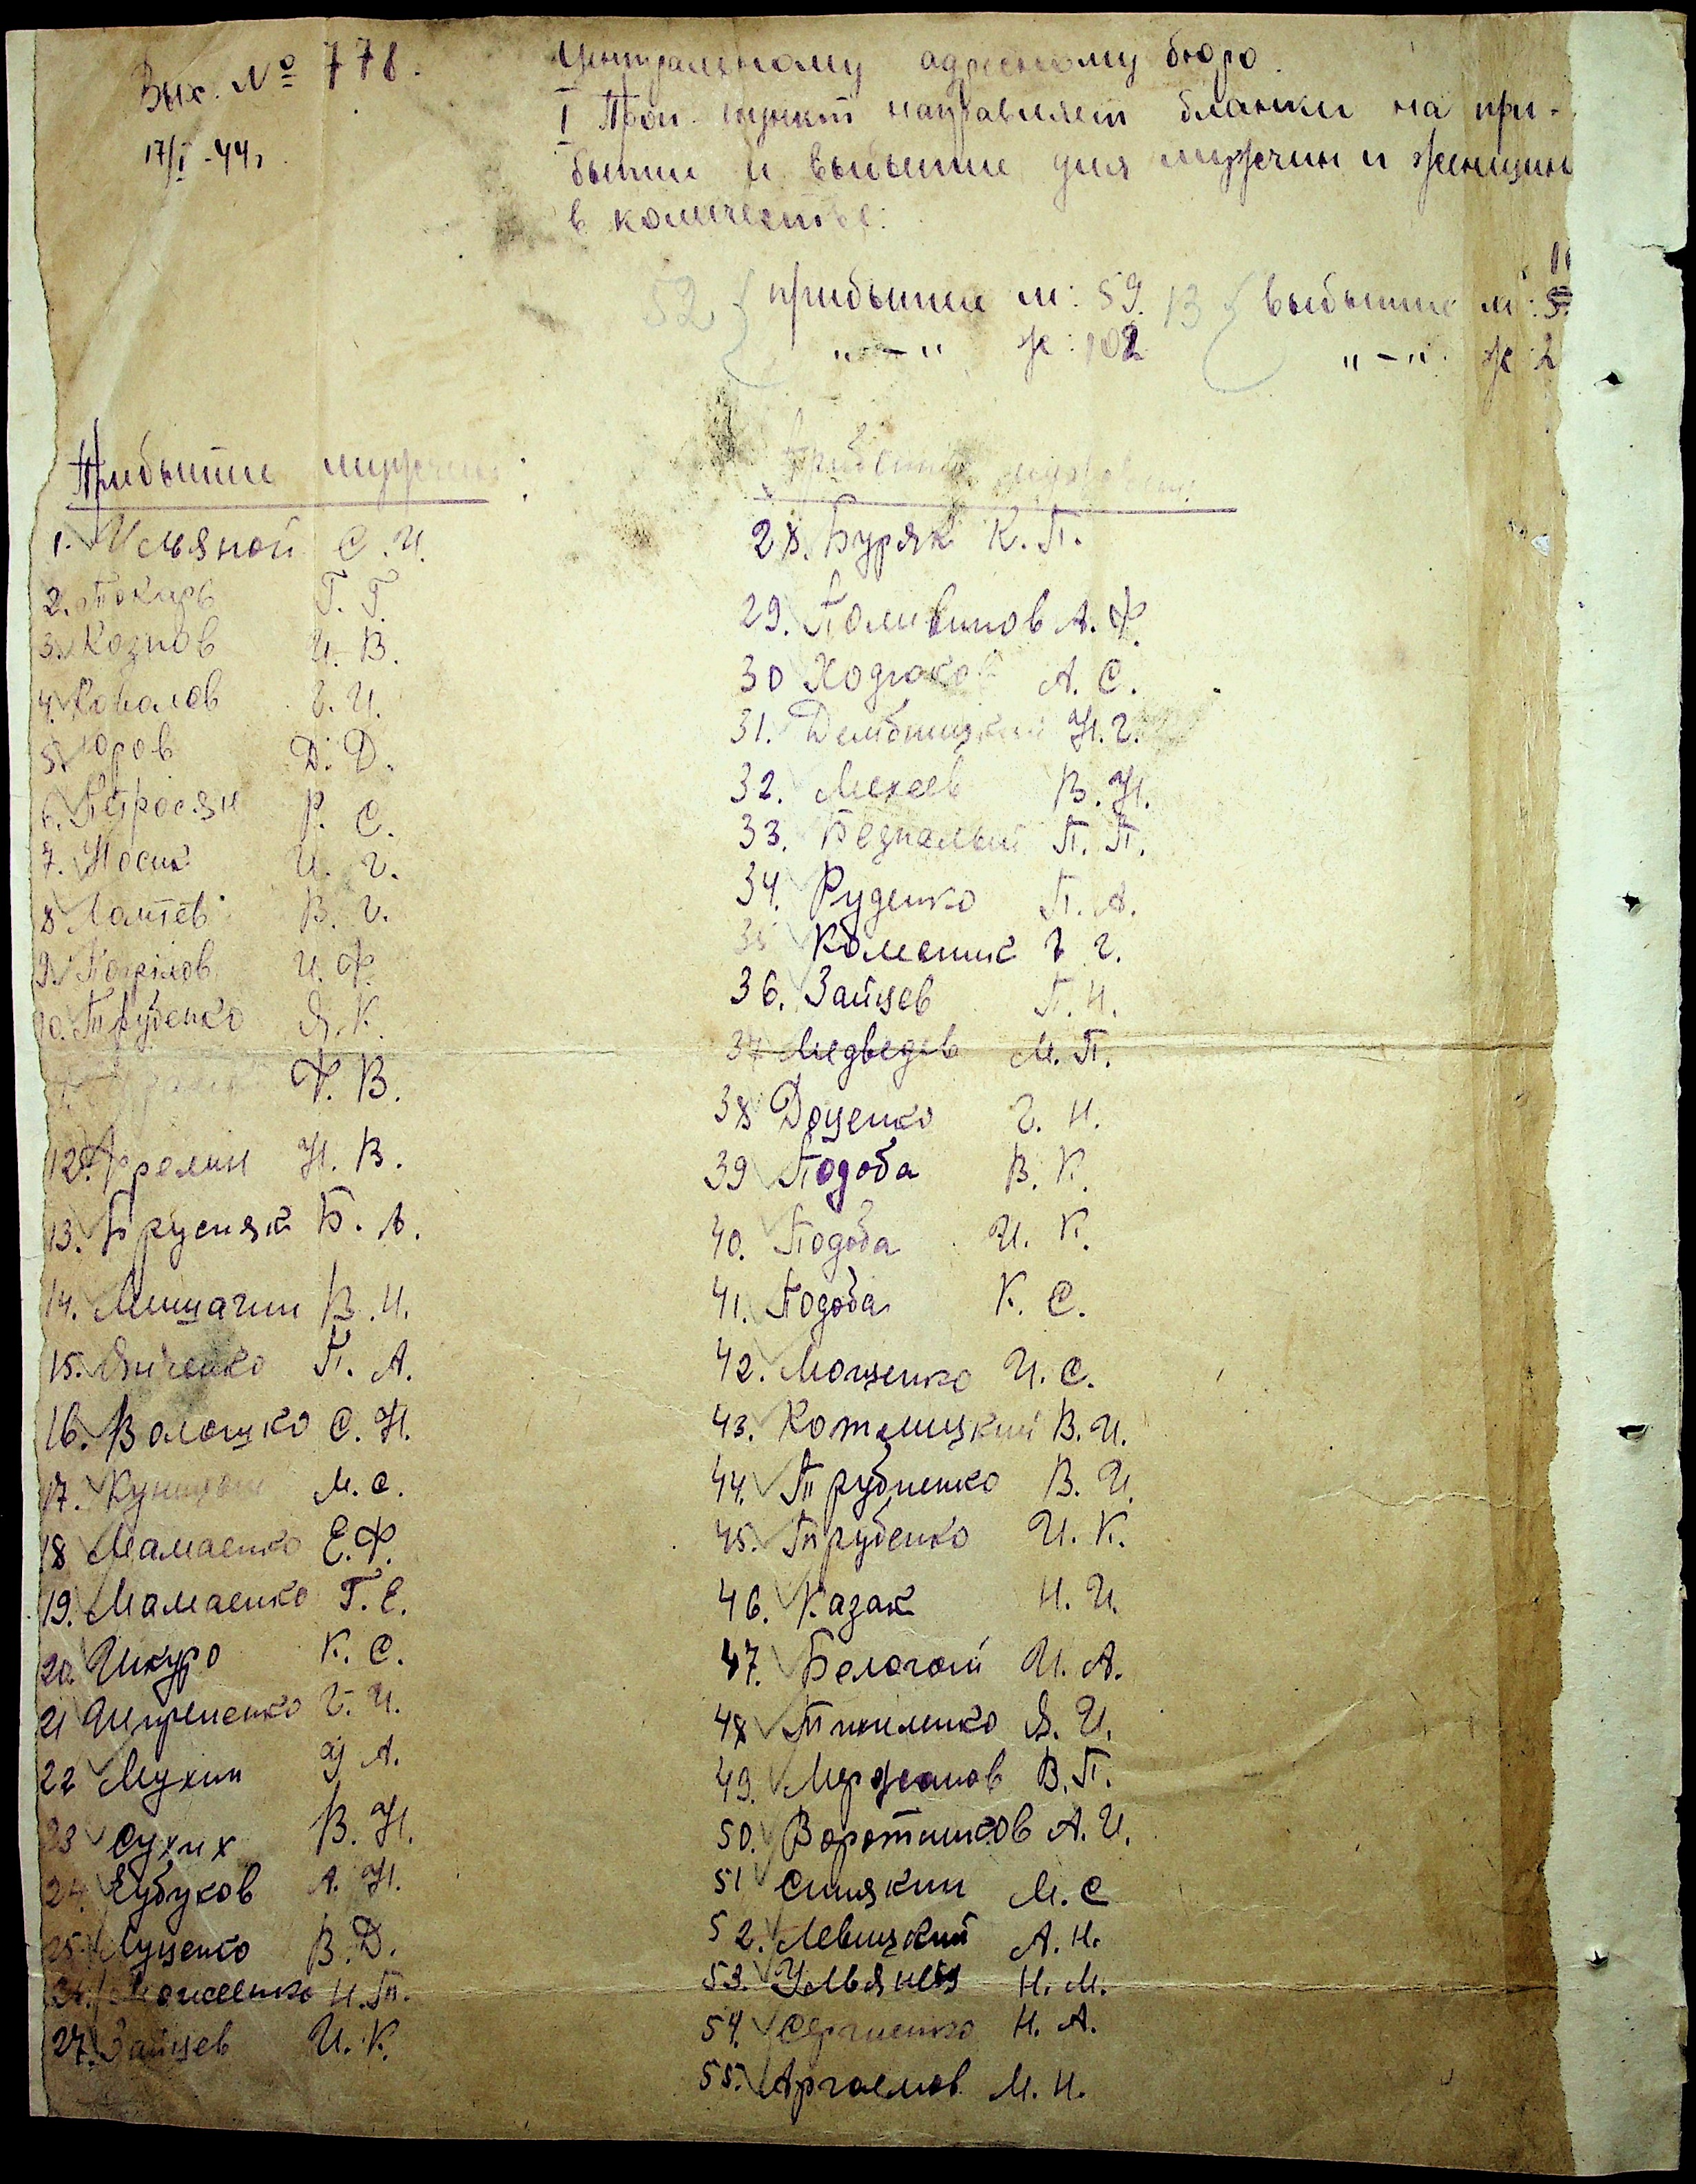 Вых. № 778.
17/I-44г.
Центральному адресному бюро.
I Проп. пункт направляет бланки на при-
бытие и выбытие для мужчин и женщин
в количестве:
52 { прибытие м: 59. 13 { выбытие м:
"-" ж: 102 "-" ж: 2
Прибытие мужчин:
1. Ульяной С. И.
2. Токарь Г. Г.
3. Кознов И. В.
4. Ковалев Г. И.
5. Юров Д. Д.
6. Петросян Р. С.
7. Носик И. Г.
8 Лаптев В. Г.
9. И. Ф.
10. Трубенко Я. К.
Ф. В.
12. Фролин Н. В.
13. Брусняк Б. А.
14. Мишагин В. И.
15. Янченко П. А.
16. Волошко С. Н.
17. М. С.
18 Мамаенко Е. Ф.
19. Мамаенко Г. Е.
20. Шкуро К. С.
21 Г. И.
22 Мухин У А.
23 Сухих В. Н.
24. Бубуков А. Н.
25. Луценко В. Д.
26. Моисеенко И. П.
27. Зайцев И. К.
Прибытие мужчин:
28. Буряк К. П.
29. Поливинов А. Ф.
30 Ходюков А. С.
31. Дембицкий Н. Г.
32. Михеев В. Н.
33. Безпалый П. П.
34. Руденко П. А.
35 Колесник Г. Г.
36. Зайцев П. И.
37 Медведев М. П.
38 Доценко Г. И.
39 Подоба В. К.
40. Подоба И. К.
41. Подоба К. С.
42. Мощенко И. С.
43. Котлицкий В. И.
44. Трубненко В. И.
45. Трубенко И. К.
46. Казак И. И.
47. Белогой И. А.
48 Я. И.
49. Мержанов В. П.
50. Воротников А. И.
51 Синякин М. С
52. Левицкий А. И.
53. Ульянов Н. М.
54. Сергиенко И. А.
55. М. И.